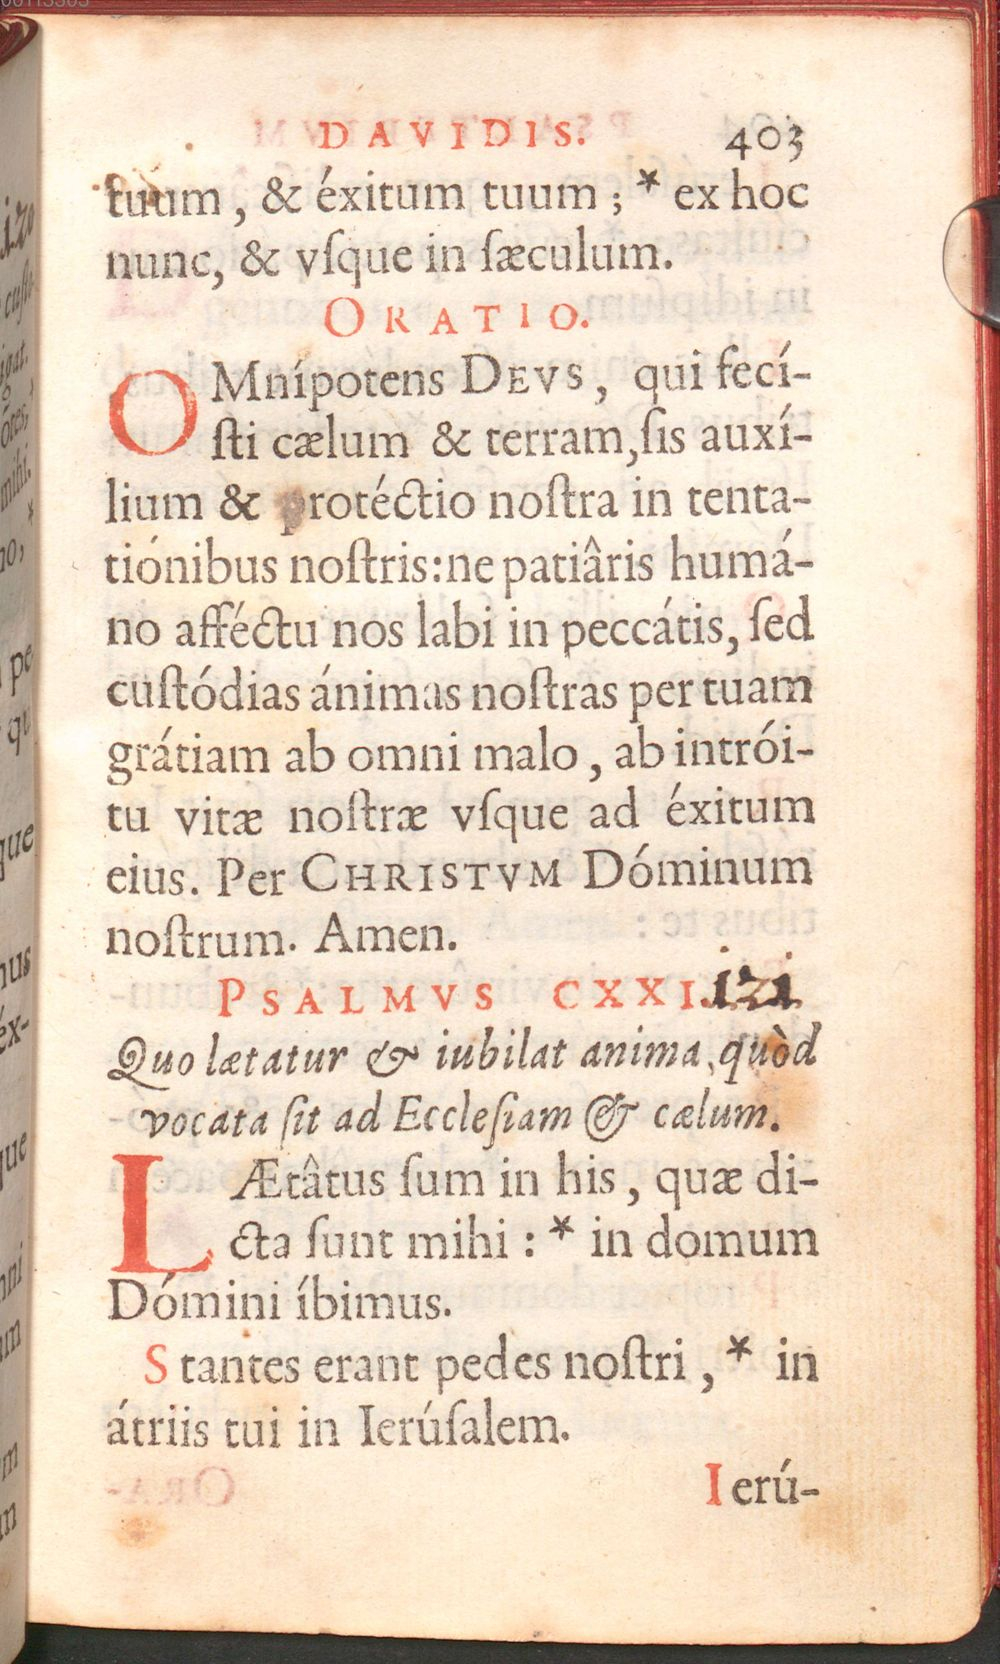 DAVIDIS. 403
tuum, & éxitum tuum ; * ex hoc
nunc, & vſque in ſæculum.
ORATIO.
OMnípotens DEVS, qui fecí-
ſti cælum & terram, ſis auxí-
lium & protéctio noſtra in tenta-
tiónibus noſtris: ne patiâris humá-
no afféctu nos labi in peccátis, ſed
cuſtódias ánimas noſtras per tuam
grátiam ab omni malo, ab intrói-
tu vitæ noſtræ vſque ad éxitum
eius. Per CHRISTVM Dóminum
noſtrum. Amen.
PSALMVS CXXI. 121
Quo lætatur & iubilat anima, quòd
vocata ſit ad Eccleſiam & cælum.
LÆtâtus ſum in his, quæ di-
cta ſunt mihi : * in domum
Dómini íbimus.
Stantes erant pedes noſtri, * in
átriis tui in Ierúſalem.
Ierú-